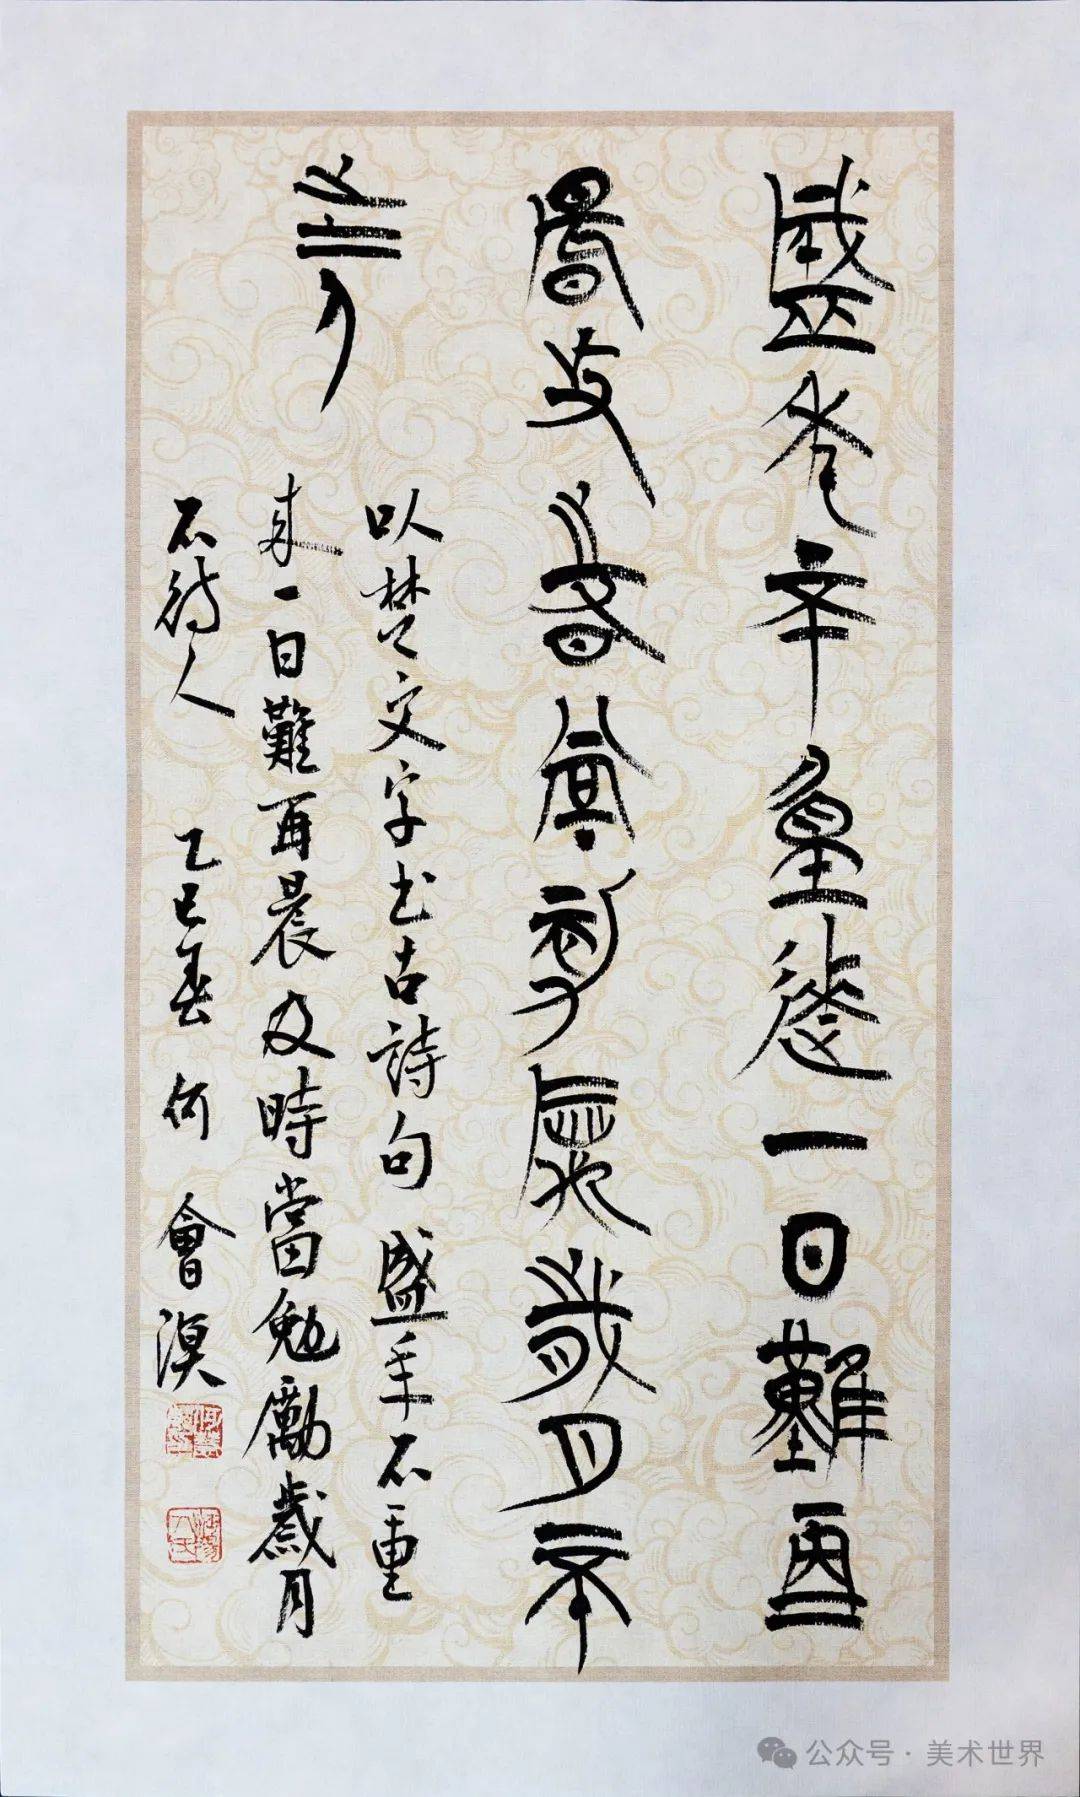 盛年不重來一日難再
晨及時當勉勵歲月不
待人
以楚文字书古詩句 盛年不重
来一日難再晨及時當勉勵歲月
不待人 乙巳春 何會溟
公众号·美术世界